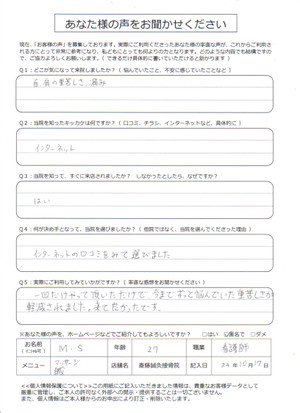 あなた様の声をお聞かせください
現在、「お客様の声」を募集しております。実際にご利用くださったあなた様の率直な声が、これからご利用される
方にとって非常に参考になり、私どもにとっても何よりの力となります。どのような内容でも結構ですので、
ご協力よろしくお願いします。（できるだけ具体的に書いていただけると助かります）
Q1：どこが気になって来院しましたか？（悩んでいたこと、不安に感じていたことなど）
右肩の重苦しさ、痛み
Q2：当院を知ったキッカケは何ですか？（口コミ、チラシ、インターネットなど、具体的に）
インターネット
Q3：当院を知って、すぐに来店されましたか？しなかったとしたら、なぜですか？
はい
Q4：何が決め手となって、当院を選びましたか？（他院ではなく、当院を選んでくださった理由）
インターネットの口コミをみて選びました
Q5：実際にご利用してみていかがですか？（率直な感想をお聞かせください）
一回だけやって頂いただけで、今までずっと悩んでいた重苦しさが
軽減されました。来て良かったです。
※あなた様の声を、ホームページなどでご紹介してもよろしいですか？　□はい　□匿名で　□ダメ
お名前 M・S 年齢 27 職業 看護師
メニュー マッサージ 鍼 店舗名 斎藤鍼灸接骨院 記入日
<<個人情報保護について>>この用紙にご記入いただきました情報は、貴重なお客様データとして
厳重に管理し、ご本人の許可なく外部への開示・提供することは一切ありません。
また、個人情報はご本人様からのお申出により訂正・削除いたします。